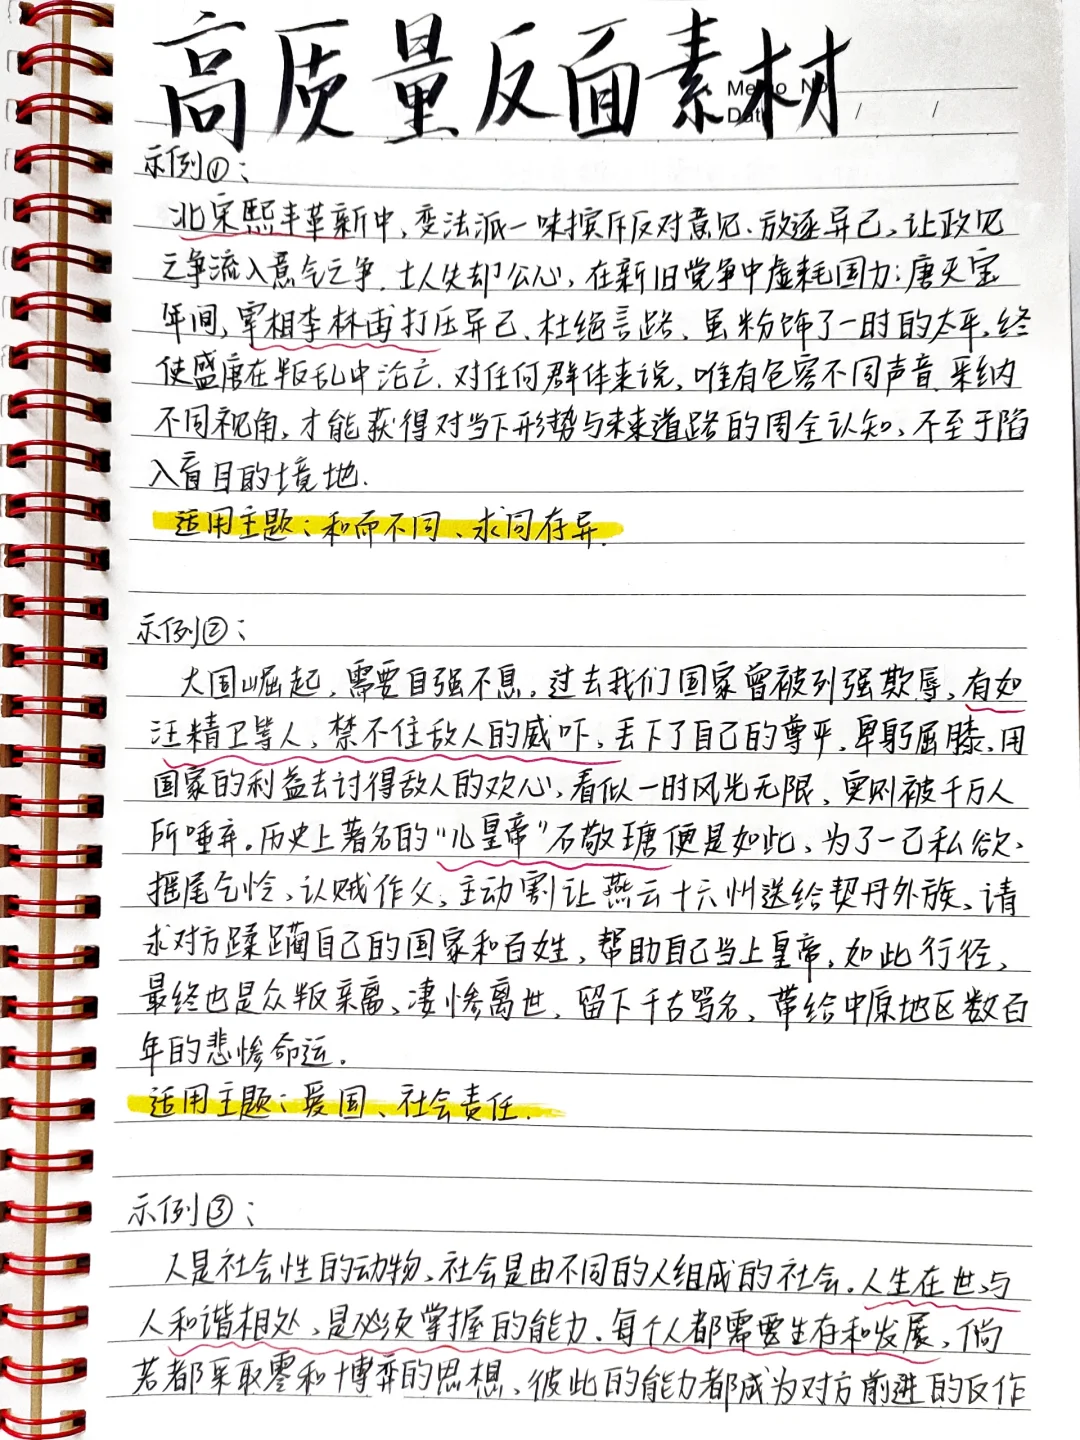 高质量反面素材
Memo No.
Date / /
示例①:
北宋熙丰革新中,变法派一味摈斥反对意见、放逐异己,让政见
之争流入意气之争,士人失却公心,在新旧党争中虚耗国力;唐天宝
年间,宰相李林甫打压异己、杜绝言路、虽粉饰了一时的太平,终
使盛唐在叛乱中沦亡.对任何群体来说,唯有包容不同声音、采纳
不同视角,才能获得对当下形势与未来道路的周全认知,不至于陷
入盲目的境地.
适用主题:和而不同、求同存异.
示例②:
大国崛起,需要自强不息。过去我们国家曾被列强欺辱,有如
汪精卫等人,禁不住敌人的威吓,丢下了自己的尊严,卑躬屈膝,用
国家的利益去讨得敌人的欢心,看似一时风光无限,实则被千万人
所唾弃。历史上著名的“儿皇帝”石敬瑭便是如此,为了一己私欲、
摇尾乞怜、认贼作父,主动割让燕云十六州送给契丹外族,请
求对方蹂躏自己的国家和百姓,帮助自己当上皇帝,如此行径,
最终也是众叛亲离、凄惨离世,留下千古骂名,带给中原地区数百
年的悲惨命运。
适用主题:爱国、社会责任.
示例③:
人是社会性的动物,社会是由不同的人组成的社会。人生在世,与
人和谐相处,是必须掌握的能力.每个人都需要生存和发展,倘
若都采取零和博弈的思想,彼此的能力都成为对方前进的反作